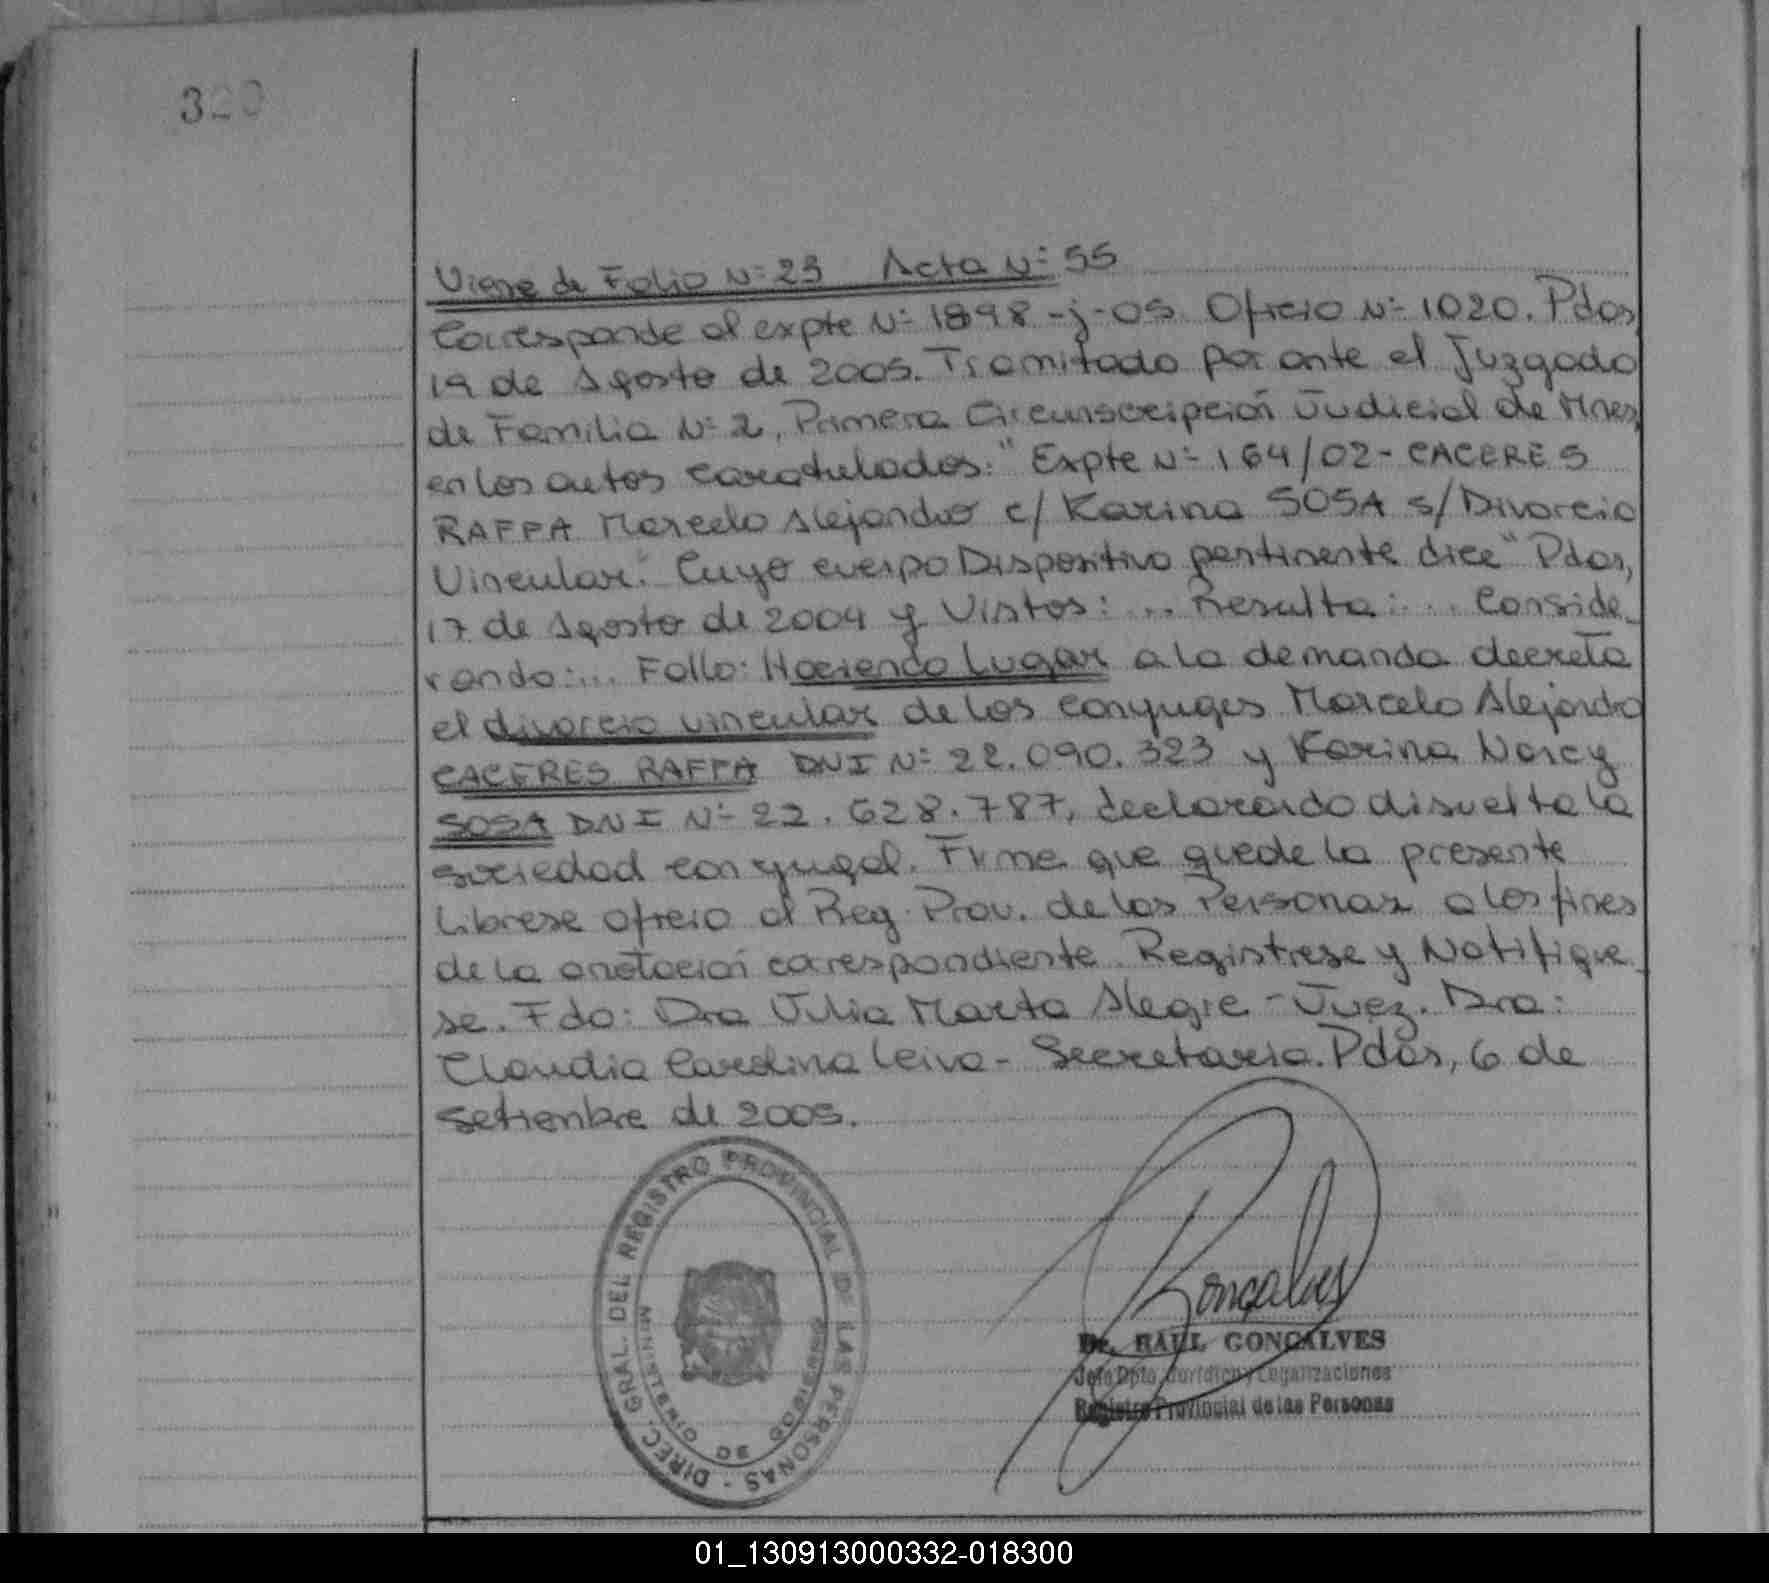 320
Viene de Folio Nº 23 Acta Nº 55
Corresponde al expte Nº 1898-j-05 Oficio Nº 1020. Pdas,
19 de Agosto de 2005. Tramitado por ante el Juzgado
de Familia Nº 2, Primera Circunscripción Judicial de Mnes,
en los autos caratulados: "Expte Nº 164/02 - CACERES
RAFFA Marcelo Alejandro c/ Karina SOSA s/ Divorcio
Vincular." Cuyo cuerpo Dispositivo pertinente dice "Pdas,
17 de Agosto de 2004 y Vistos: ... Resulta: ... Conside_
rando: ... Fallo: Haciendo Lugar a la demanda decreta
el divorcio vincular de los conyuges Marcelo Alejandro
CACERES RAFFA DNI Nº 22.090.323 y Karina Norcy
SOSA DNI Nº 22.628.787, declarando disuelta la
sociedad conyugal. Firme que quede la presente
librese oficio al Reg. Prov. de las Personas a los fines
de la anotación correspondiente. Registrese y Notifique_
se. Fdo: Dra Julia Marta Alegre - Juez. Dra:
Claudia Carolina Leiva - Secretaria. Pdas, 6 de
Setiembre de 2005.
DIREC. GRAL. DEL REGISTRO PROVINCIAL DE LAS PERSONAS -
MINISTERIO DE GOBIERNO
Gonçalves
Dr. RAUL GONÇALVES
Jefe Dpto. Jurídico y Legalizaciones
Registro Provincial de las Personas
01_130913000332-018300